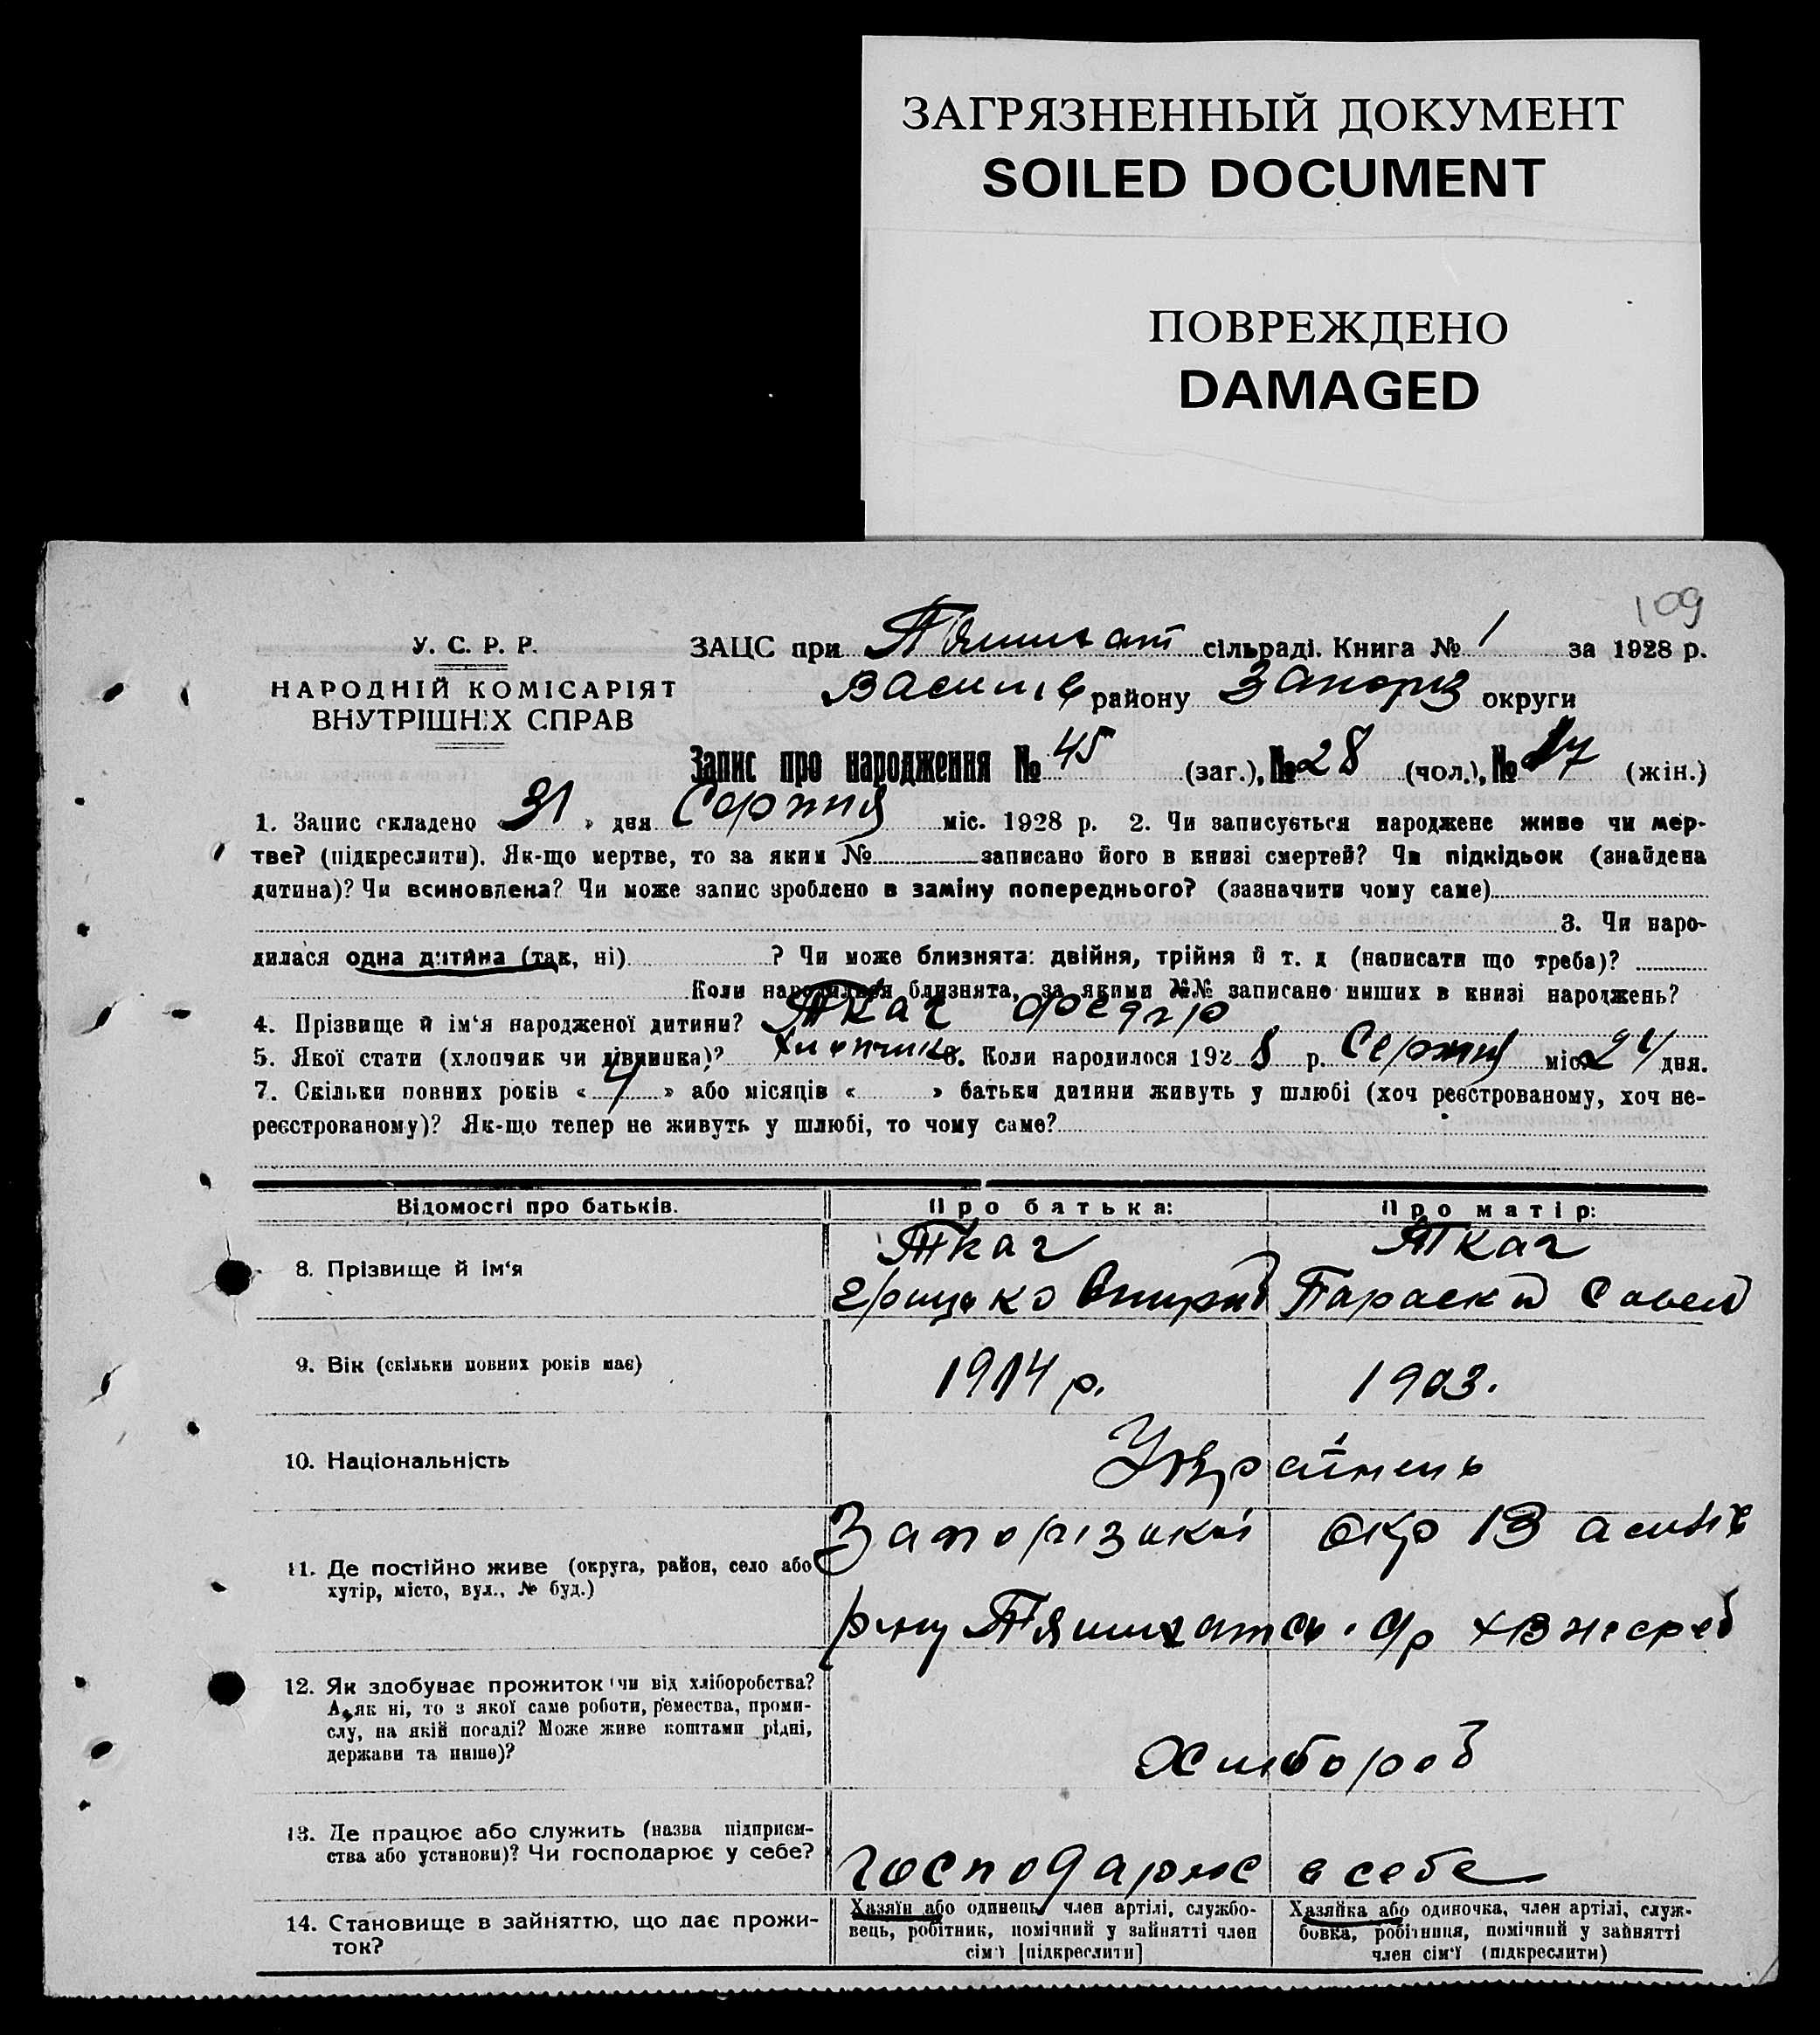 ЗАГРЯЗНЕННЫЙ ДОКУМЕНТ
SOILED DOCUMENT
ПОВРЕЖДЕНО
DAMAGED
109
У. С. Р. Р.
НАРОДНІЙ КОМІСАРІЯТ
ВНУТРІШНІХ СПРАВ
ЗАЦС при Пяшихат сільраді. Книга № 1 за 1928 р.
Василів району Запоріз округи
Запис про народження № 45 (заг.), № 28 (чол.), № 17 (жін.)
1. Запис складено « 31 » дня Серпня міс. 1928 р. 2. Чи записується народжене живе чи мер-
тве? (підкреслити). Як-що мертве, то за яким № записано його в книзі смертей? Чи підкідьок (знайдена
дитина)? Чи всиновлена? Чи може запис зроблено в заміну попереднього? (зазначити чому саме)
3. Чи наро-
дилася одна дитина (так, ні) ? Чи може близнята: двійня, трійня й т. д (написати що треба)?
Коли народилися близнята, за якими №№ записано инших в книзі народжень?
4. Прізвище й ім‘я народженої дитини? Ткач Федір
5. Якої стати (хлопчик чи дівчинка)? Хлопчик 6. Коли народилося 1928 р. Серпня міс. 24 дня.
7. Скільки повних років « 4 » або місяців « » батьки дитини живуть у шлюбі (хоч реєстрованому, хоч не-
реєстрованому)? Як-що тепер не живуть у шлюбі, то чому саме?
Відомості про батьків.
Про батька:
Про матір:
8. Прізвище й ім‘я
Ткач
Грицько Спирид
Ткач
Параска Савел
9. Вік (скільки повних років має)
1904 р.
1903.
10. Національність
Українець
11. Де постійно живе (округа, район, село або
хутір, місто, вул., № буд.)
Запорізької окр Василів
р-ну Пяшихатсь.
12. Як здобуває прожиток (чи від хліборобства?
А як ні, то з якої саме роботи, ремества, проми-
слу, на якій посаді? Може живе коштами рідні,
держави та инше)?
Хлибороб
13. Де працює або служить (назва підприєм-
ства або установи)? Чи господарює у себе?
господарює в себе
14. Становище в зайняттю, що дає прожи-
ток?
Хазяїн або одинець, член артілі, службо-
вець, робітник, помічний у зайнятті член
сім‘ї [підкреслити]
Хазяйка або одиночка, член артілі, служ-
бовка, робітниця, помічний у зайнятті
член сім‘ї (підкреслити)